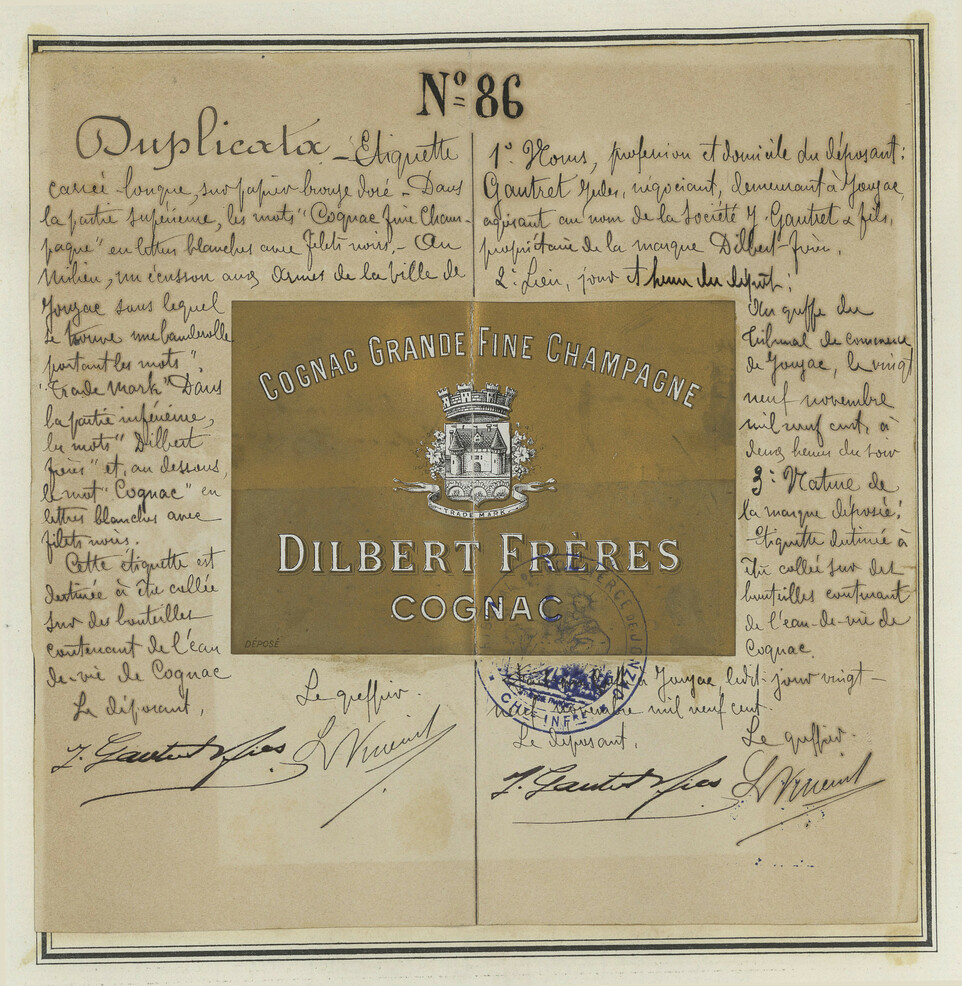 Nº 86
Duplicata - Etiquette
carrée longue, sur papier bronze doré - Dans
la partie supérieure, les mots "Cognac fine Cham-
pagne" en lettres blanches avec filets noirs. - Au
milieu, un écusson aux armes de la ville de
Jonzac sous lequel
se trouve une banderolle
portant les mots "
"Trade Mark" Dans
la partie inférieure,
les mots "Dilbert
frères" et, au dessous,
le mot "Cognac" en
lettres blanches avec
filets noirs.
Cette étiquette est
destinée à être collée
sur des bouteilles
contenant de l'eau
de-vie de Cognac
Le déposant,
Le greffier.
J. Gautret & fils
L Vincent
1º. Noms, profession et domicile du déposant:
Gautret Jules, négociant, demeurant à Jonzac
agissant au nom de la Société J. Gautret & fils,
propriétaire de la marque Dilbert frères.
2º. Lieu, jour et heure du dépôt:
Au greffe du
Tribunal de commerce
de Jonzac, le vingt
neuf novembre
mil neuf cent, à
deux heures du soir
3º: Nature de
la marque déposée:
Etiquette destinée à
être collée sur des
bouteilles contenant
de l'eau-de-vie de
Cognac.
Jonzac ledit jour vingt-
neuf novembre mil neuf cent.
Le déposant,
Le greffier.
J. Gautret & fils
L Vincent
COGNAC GRANDE FINE CHAMPAGNE
TRADE MARK
DILBERT FRÈRES
COGNAC
DÉPOSÉ
COMMERCE DE JONZAC
CHTE INFRE